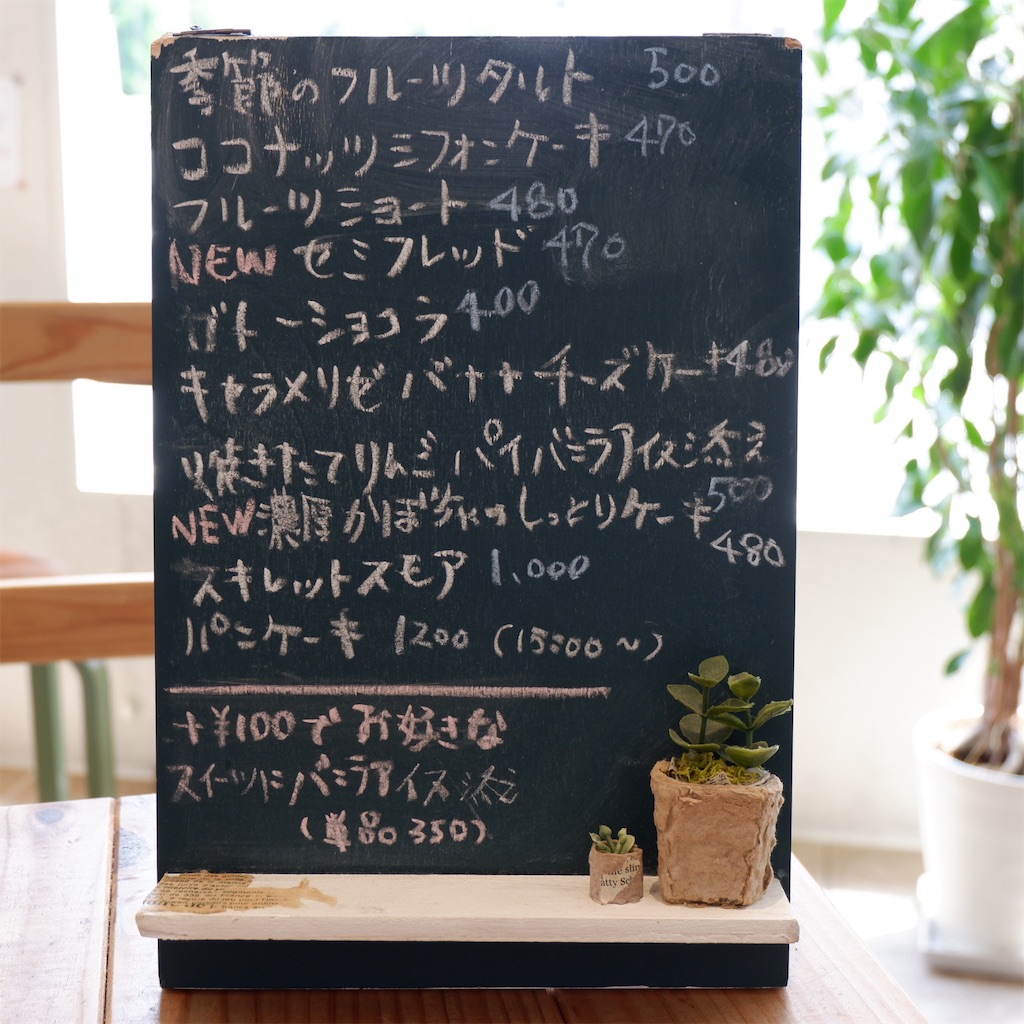 季節のフルーツタルト 500
ココナッツシフォンケーキ 470
フルーツショート 480
NEW セミフレッド 470
ガトーショコラ 400
キャラメリゼバナナチーズケーキ 480
焼きたてりんごパイバニラアイス添え 500
NEW 濃厚かぼちゃのしっとりケーキ 480
スキレットスモア 1,000
パンケーキ 1200 (15:00~)
+¥100でお好きな
スイーツにバニラアイス添え
(単品 350)